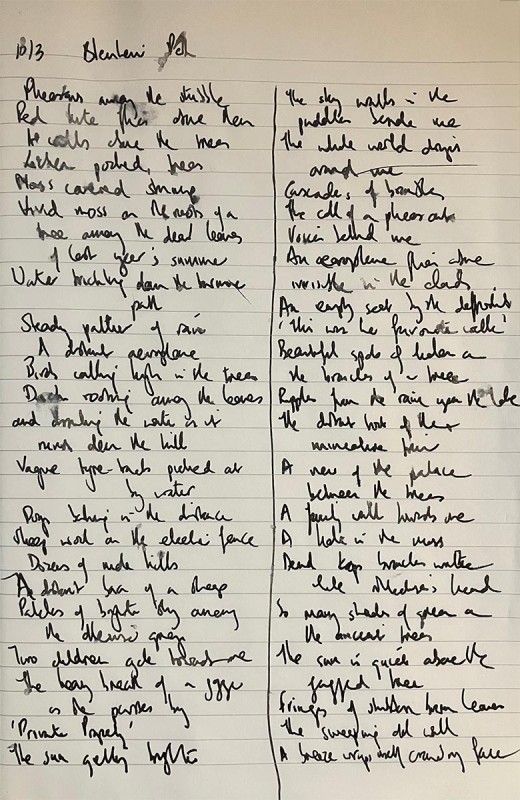 10/3 Blenheim
Pheasants among the stubble
Red kite flies above them
He calls above the trees
trees
Moss covered
Vivid moss on the roots of a
tree among the dead leaves
of last year's summer
Water trickling down the
path
Steady patter of rain
A distant aeroplane
Birds calling high in the trees
rooting among the leaves
and drinking the water as it
runs down the hill
Vague tyre-tracks picked out
by water
Dogs barking in the distance
Sheep wool on the electric fence
Dozens of mole hills
A distant baa of a sheep
Patches of bright among
the green
Two children towards me
The heavy breath of a jogger
as he passes by
'Private Property'
The sun getting brighter
The sky walks in the
puddles beside me
The whole world
around me
Cascades of
The call of a pheasant
Voices behind me
An aeroplane flies above
invisible in the clouds
An empty seat by the
'This was her favourite walk'
Beautiful spots of lichen on
the branches of a tree
Ripples from the rain upon the lake
The distant of
A view of the palace
between the trees
A family walk towards me
A hole in the moss
Dead branches
like Medusa's head
So many shades of green on
the ancient trees
The sun is quiet above the
jagged tree
Fringes of brown leaves
The sweeping old
A breeze wraps itself around my face